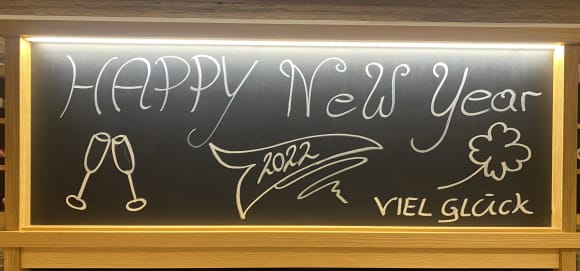 HAPPY NeW Year
2022
VIEL GLÜCK